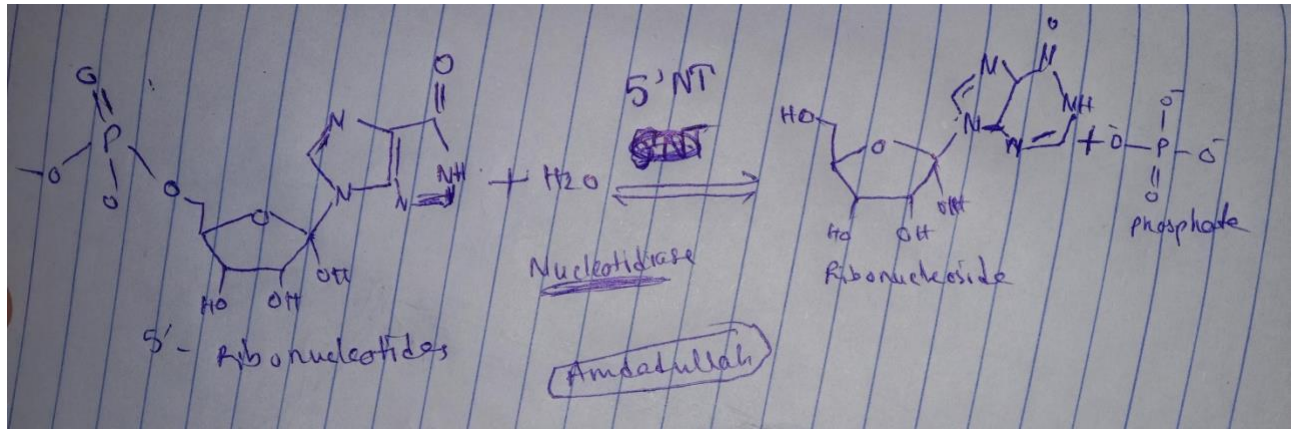 O
P
O
O
O
N
N
O
NH
N
O
OH
HO
OH
5'- Ribonucleotides
+ H2O
5'NT
Nucleotidiase
Amdadullah
HO
O
N
N
O
N
NH
N
OH
HO
OH
Ribonucleoside
+
O-
O-
P
O-
O
Phosphate